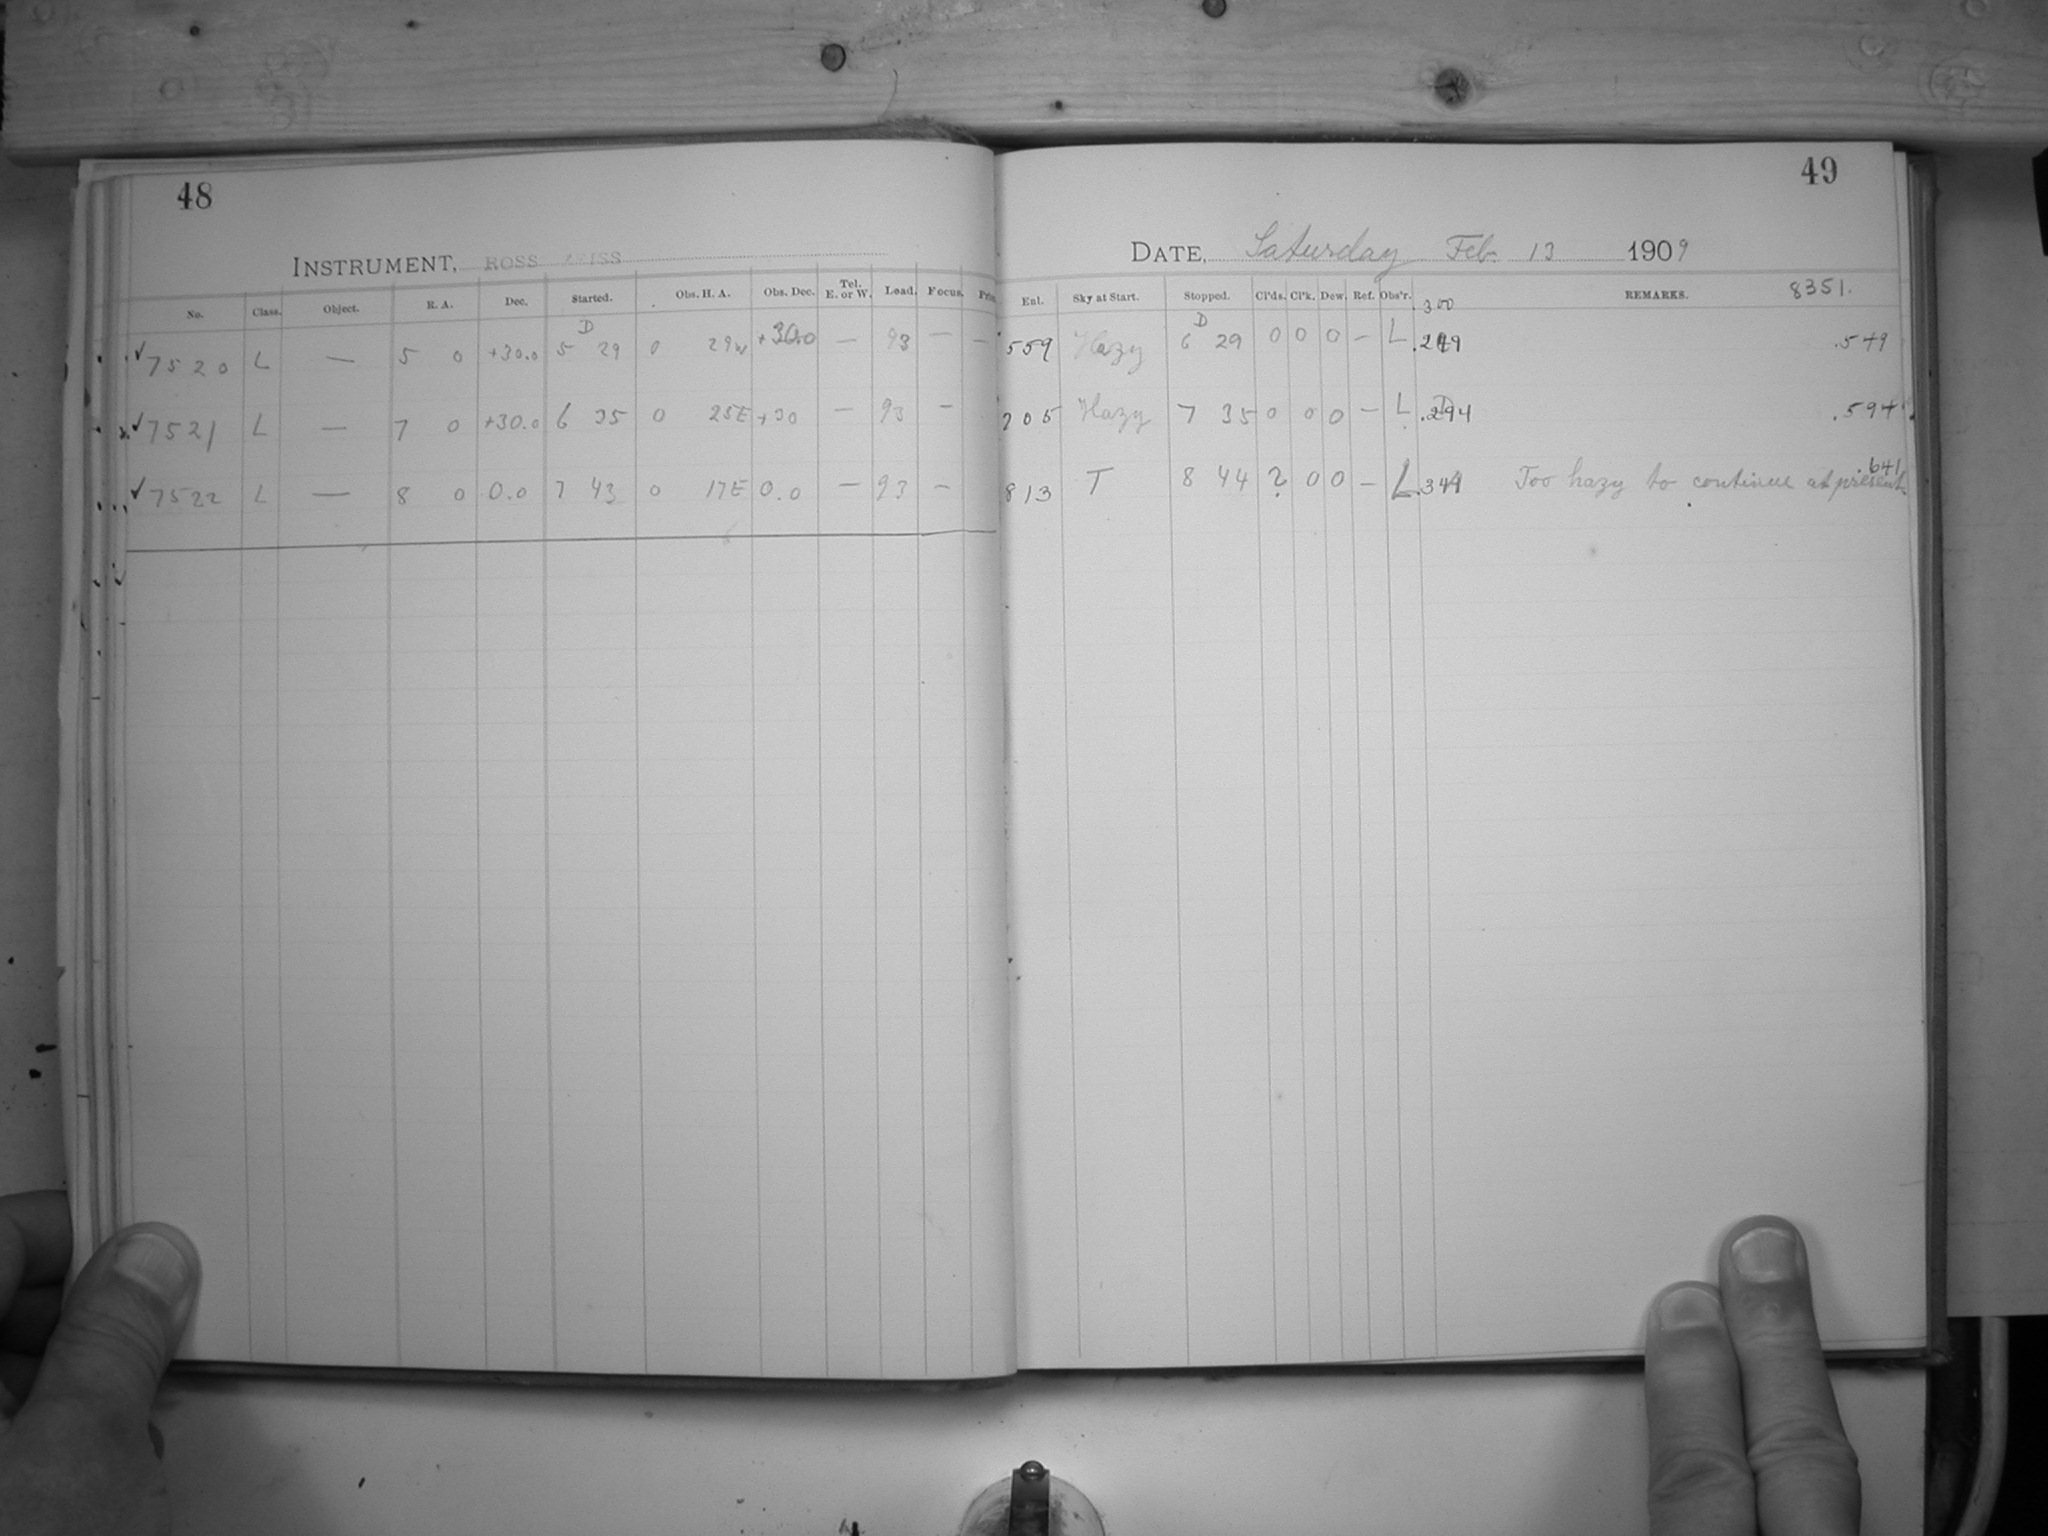 48
INSTRUMENT, ROSS ZEISS
No. Class. Object. R. A. Dec. Started. Obs. H. A. Obs. Dec. Tel. E. or W. Load. Focus.
✓7520 L — 5 0 +30.0 D 5 29 0 29w +30.0 — 93 — —
✓7521 L — 7 0 +30.0 6 35 0 25E +30 — 93 —
✓7522 L — 8 0 0.0 7 43 0 17E 0.0 — 93 —
49
DATE, Saturday Feb. 13 1909
Ent. Sky at Start. Stopped. Cl'ds. Cl'k. Dew. Ref. Obs'r. REMARKS. 8351.
.300
559 Hazy D 6 29 0 0 0 — L .549
Hazy 7 35 0 0 0 — L .594
813 T 8 44 ? 0 0 — L Too hazy to continue at present .641